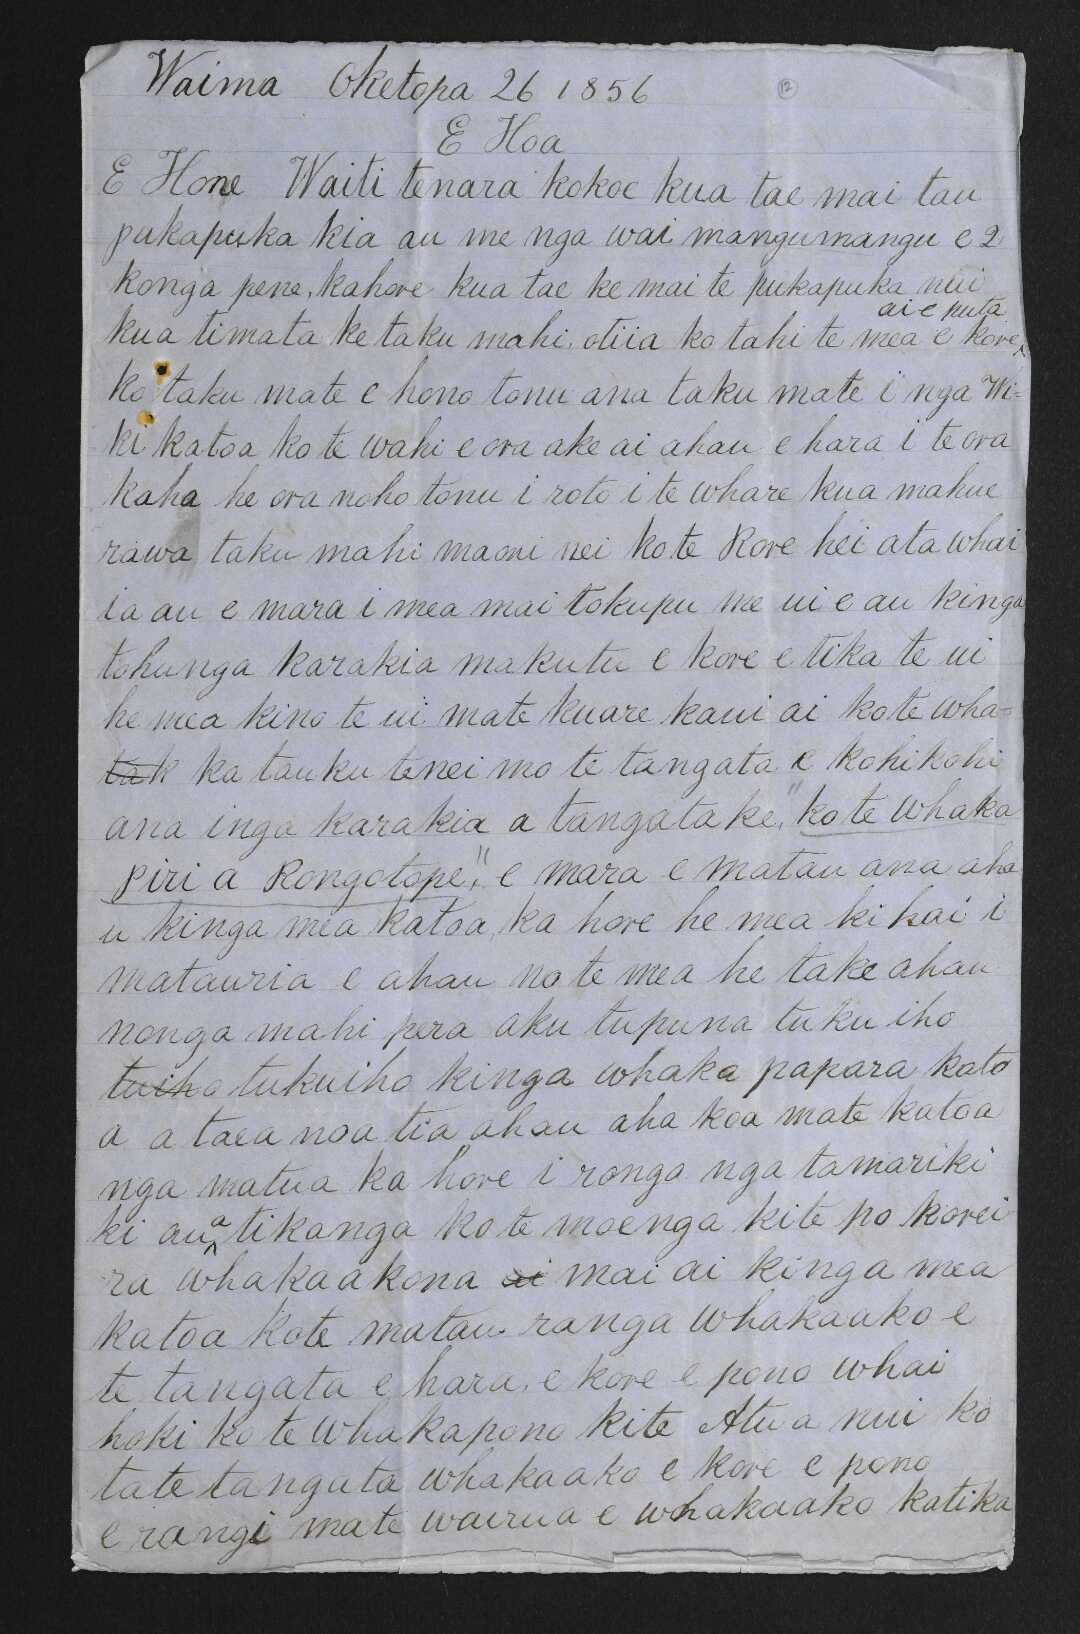 Waima Oketopa 26 1856
12
E Hoa
E Hone Waiti tenara kokoe kua tae mai tau
pukapuka kia au me nga wai mangumangu e 2
konga pene, kahore kua tae ke mai te pukapuka nui
ai e puta
kua timata ke taku mahi, otiia ko tahi te mea e kore ^
ko taku mate e hono tonu ana taku mate i nga Wi=
ki katoa ko te wahi e ora ake ai ahau e hara i te ora
kaha he ora noho tonu i roto i te whare kua mahue
rawa taku mahi maori nei ko te Rore hei ata whai
ia au e mara i mea mai tokupu me ui e au kinga
tohunga karakia makutu e kore e tika te ui
he mea kino te ui mate kuare kaui ai ko te wha=
tak ka tauku tenei mo te tangata e kohikohi
ana inga karakia a tangata ke, "ko te whaka
piri a Rongotope", e mara e matau ana aha
u kinga mea katoa, ka hore he mea ki hai i
matauria e ahau no te mea he take ahau
nonga mahi pera aku tupuna tuku iho
tuiho tukuiho kinga whaka papara kato
a a taea noa tia ahau aha koa mate katoa
nga matua ka hore i rongo nga tamariki
ki au ^a tikanga ko te moenga kite po korei
ra whakaakona ai mai ai kinga mea
katoa kote matau ranga whakaako e
te tangata e hara, e kore e pono whai
hoki ko te whakapono kite Atua nui ko
tate tangata whakaako e kore e pono
e rangi mate wairua e whakaako katika